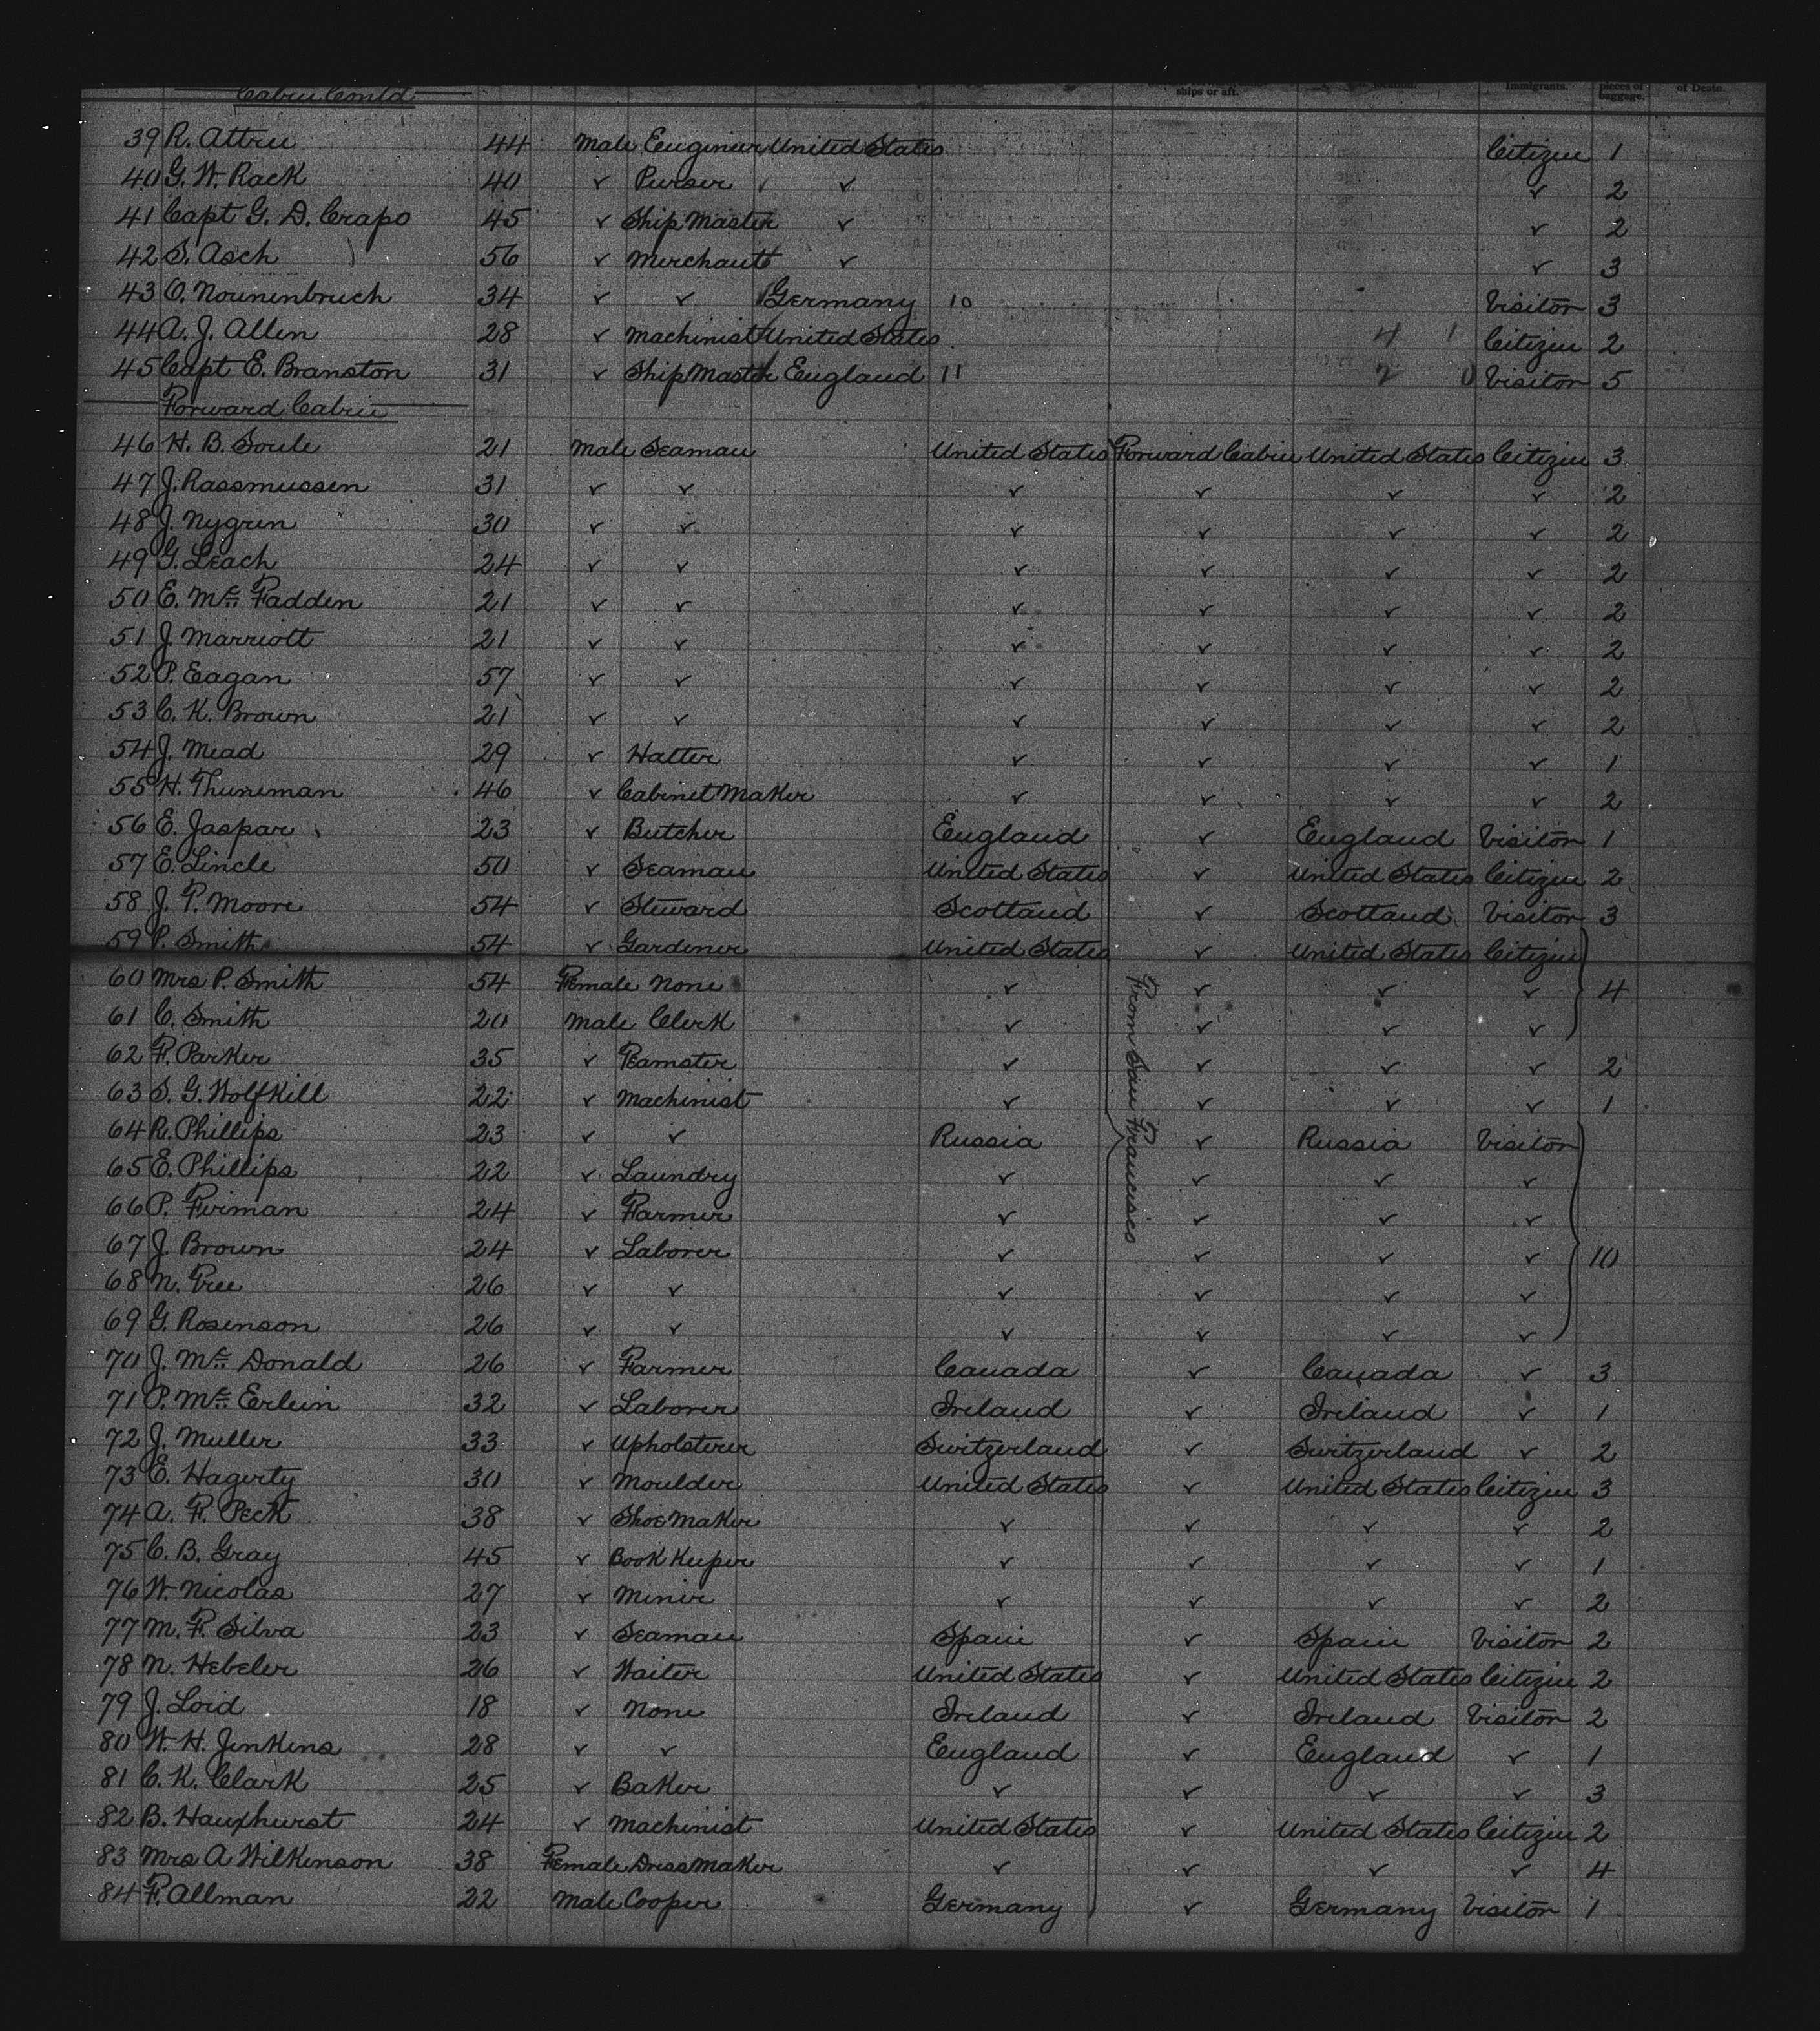 Cabin Contd
ships or aft. Immigrants. pieces of baggage. of Death.
39 R. Attree 44 Male Engineer United States Citizen 1
40 G. W. Rack 40 ✓ Purser ✓ ✓ 2
41 Capt G. D. Crapo 45 ✓ Ship Master ✓ ✓ 2
42 S. Asch 56 ✓ Merchant ✓ ✓ 3
43 O. Nounenbruch 34 ✓ ✓ Germany 10 Visitor 3
44 A. J. Allen 28 ✓ Machinist United States 4 1 Citizen 2
45 Capt E. Branston 31 ✓ Ship Master England 11 2 0 Visitor 5
Forward Cabin
46 H. B. Soule 21 Male Seaman United States Forward Cabin United States Citizen 3
47 J. Rassmussen 31 ✓ ✓ ✓ ✓ ✓ ✓ 2
48 J. Nygren 30 ✓ ✓ ✓ ✓ ✓ ✓ 2
49 G. Leach 24 ✓ ✓ ✓ ✓ ✓ ✓ 2
50 E. Mc Fadden 21 ✓ ✓ ✓ ✓ ✓ ✓ 2
51 J. Marriott 21 ✓ ✓ ✓ ✓ ✓ ✓ 2
52 P. Eagan 57 ✓ ✓ ✓ ✓ ✓ ✓ 2
53 C. K. Brown 21 ✓ ✓ ✓ ✓ ✓ ✓ 2
54 J. Mead 29 ✓ Hatter ✓ ✓ ✓ ✓ 1
55 H. Thuneman 46 ✓ Cabinet Maker ✓ ✓ ✓ ✓ 2
56 E. Jaspar 23 ✓ Butcher England ✓ England Visitor 1
57 E. Lincle 50 ✓ Seaman United States ✓ United States Citizen 2
58 J. P. Moore 54 ✓ Steward Scotland ✓ Scotland Visitor 3
59 P. Smith 54 ✓ Gardener United States ✓ United States Citizen
60 Mrs P. Smith 54 Female None ✓ ✓ ✓ ✓ 4
61 C. Smith 20 Male Clerk ✓ ✓ ✓ ✓
62 F. Parker 35 ✓ Teamster ✓ ✓ ✓ ✓ 2
63 S. G. Wolfkill 22 ✓ Machinist ✓ ✓ ✓ ✓ 1
From San Francisco
64 R. Phillips 23 ✓ ✓ Russia ✓ Russia Visitor
65 E. Phillips 22 ✓ Laundry ✓ ✓ ✓ ✓
66 P. Firman 24 ✓ Farmer ✓ ✓ ✓ ✓
67 J. Brown 24 ✓ Laborer ✓ ✓ ✓ ✓ 10
68 N. 26 ✓ ✓ ✓ ✓ ✓ ✓
69 G. Rosenson 26 ✓ ✓ ✓ ✓ ✓ ✓
70 J. Mc Donald 26 ✓ Farmer Canada ✓ Canada ✓ 3
71 P. Mc Erlein 32 ✓ Laborer Ireland ✓ Ireland ✓ 1
72 J. Muller 33 ✓ Upholsterer Switzerland ✓ Switzerland ✓ 2
73 E. Hagerty 30 ✓ Moulder United States ✓ United States Citizen 3
74 A. F. Peck 38 ✓ Shoe Maker ✓ ✓ ✓ ✓ 2
75 C. B. Gray 45 ✓ Book Keeper ✓ ✓ ✓ ✓ 1
76 W. Nicolas 27 ✓ Miner ✓ ✓ ✓ ✓ 2
77 M. F. Silva 23 ✓ Seaman Spain ✓ Spain Visitor 2
78 N. Hebeler 26 ✓ Waiter United States ✓ United States Citizen 2
79 J. Loid 18 ✓ None Ireland ✓ Ireland Visitor 2
80 W. H. Jenkins 28 ✓ ✓ England ✓ England ✓ 1
81 C. K. Clark 25 ✓ Baker ✓ ✓ ✓ ✓ 3
82 B. Hauxhurst 24 ✓ Machinist United States ✓ United States Citizen 2
83 Mrs A Wilkenson 38 Female Dress Maker ✓ ✓ ✓ ✓ 4
84 F. Allman 22 Male Cooper Germany ✓ Germany Visitor 1